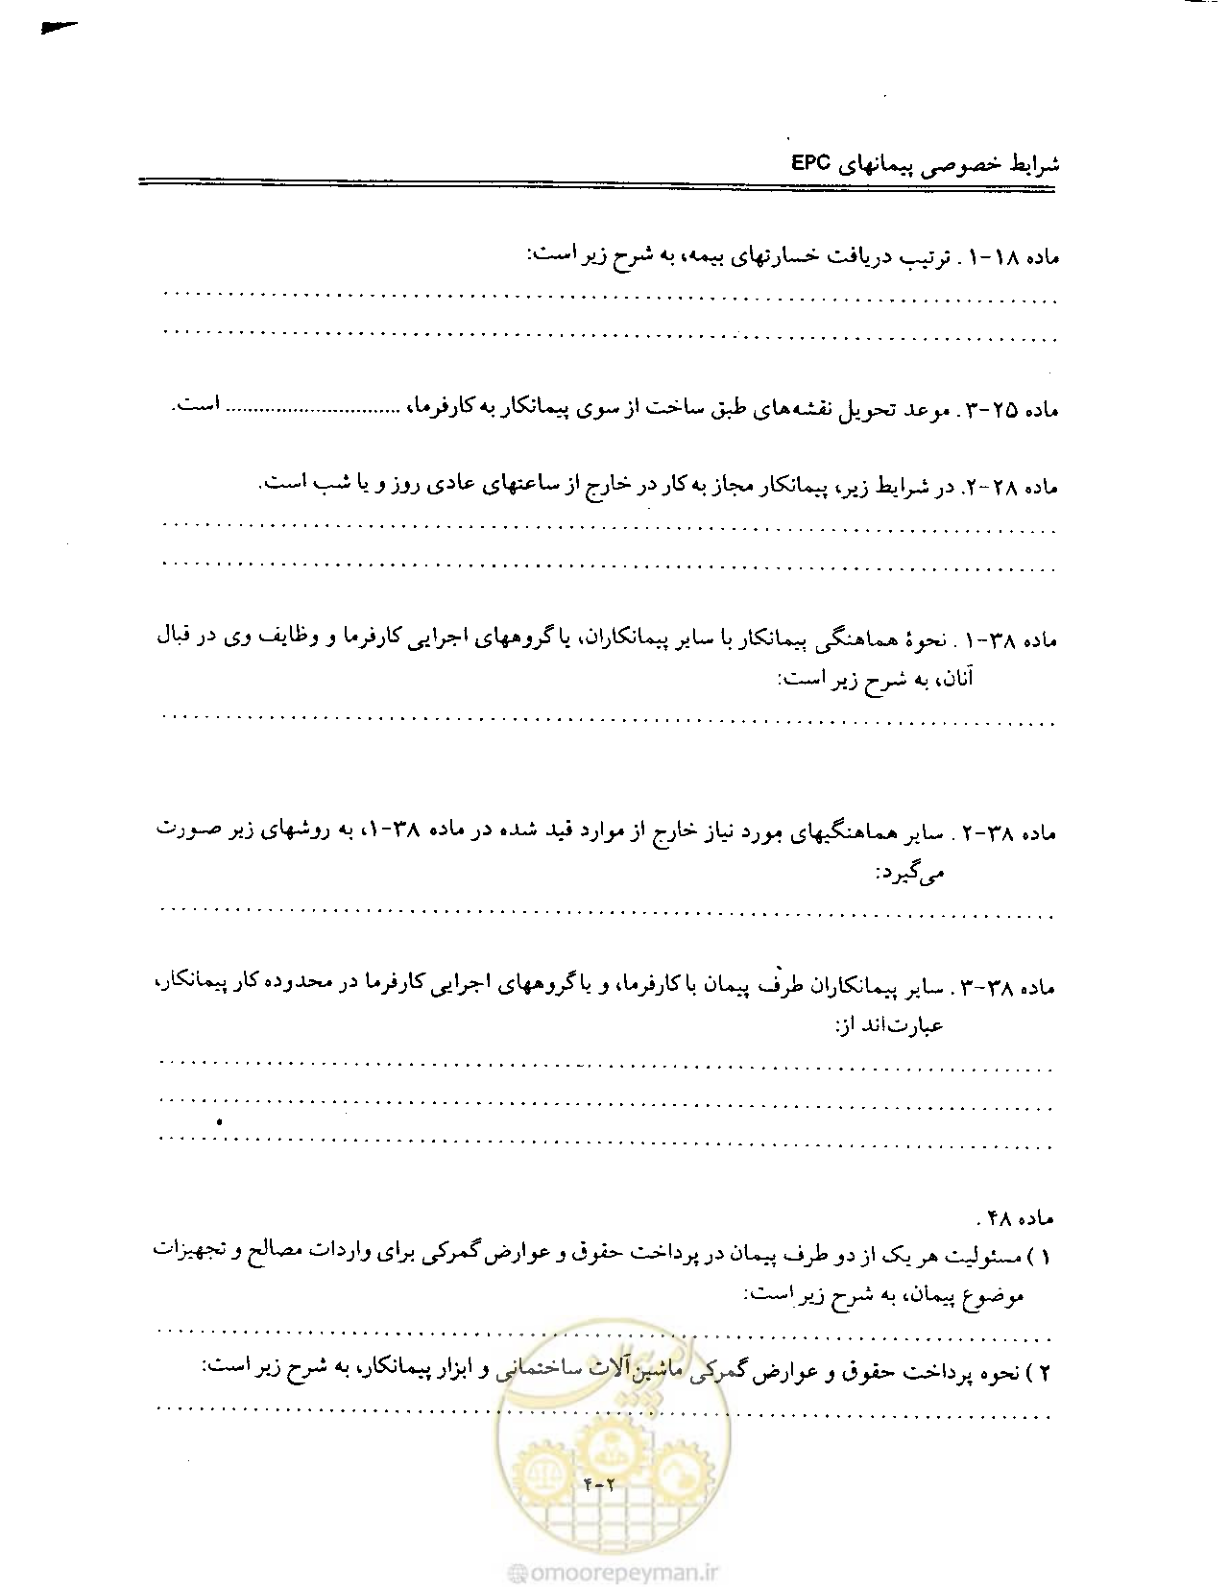 شرایط خصوصی پیمانهای EPC
ماده ۱۸-۱ . ترتیب دریافت خسارتهای بیمه، به شرح زیر است:
................................................................................
................................................................................
ماده ۲۵-۳ . موعد تحویل نقشه‌های طبق ساخت از سوی پیمانکار به کارفرما، ............................... است.
ماده ۲۸-۲. در شرایط زیر، پیمانکار مجاز به کار در خارج از ساعتهای عادی روز و یا شب است.
................................................................................
................................................................................
ماده ۳۸-۱ . نحوۀ هماهنگی پیمانکار با سایر پیمانکاران، یا گروههای اجرایی کارفرما و وظایف وی در قبال
آنان، به شرح زیر است:
................................................................................
ماده ۳۸-۲ . سایر هماهنگیهای مورد نیاز خارج از موارد قید شده در ماده ۳۸-۱، به روشهای زیر صورت
می‌گیرد:
................................................................................
ماده ۳۸-۳ . سایر پیمانکاران طرف پیمان با کارفرما، و یا گروههای اجرایی کارفرما در محدوده کار پیمانکار،
عبارت‌اند از:
................................................................................
................................................................................
................................................................................
ماده ۴۸ .
۱ ) مسئولیت هر یک از دو طرف پیمان در پرداخت حقوق و عوارض گمرکی برای واردات مصالح و تجهیزات
موضوع پیمان، به شرح زیر است:
................................................................................
۲ ) نحوه پرداخت حقوق و عوارض گمرکی ماشین‌آلات ساختمانی و ابزار پیمانکار، به شرح زیر است:
................................................................................
امور پیمان
۴-۲
@omoorepeyman.ir